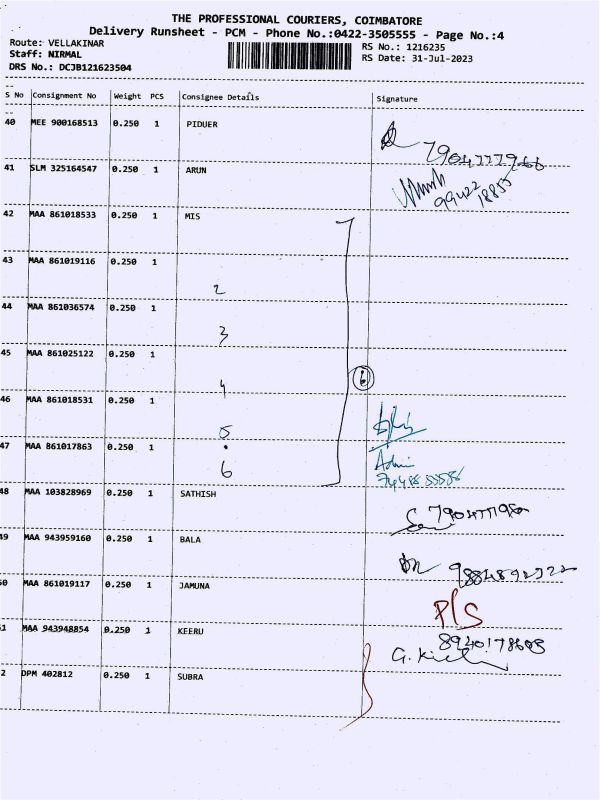 THE PROFESSIONAL COURIERS, COIMBATORE
Delivery Runsheet - PCM - Phone No.:0422-3505555 - Page No.:4
Route: VELLAKINAR
RS No.: 1216235
Staff: NIRMAL
RS Date: 31-Jul-2023
DRS No.: DCJB121623504
S No Consignment No Weight PCS Consignee Details Signature
40 MEE 900168513 0.250 1 PIDUER
41 SLM 325164547 0.250 1 ARUN
42 MAA 861018533 0.250 1 MIS
43 MAA 861019116 0.250 1
2
44 MAA 861036574 0.250 1
3
45 MAA 861025122 0.250 1
6
4
46 MAA 861018531 0.250 1
5
47 MAA 861017863 0.250 1
Admin
6
48 MAA 103828969 0.250 1 SATHISH
49 MAA 943959160 0.250 1 BALA
50 MAA 861019117 0.250 1 JAMUNA
P/S
51 MAA 943948854 0.250 1 KEERU
2 DPM 402812 0.250 1 SUBRA